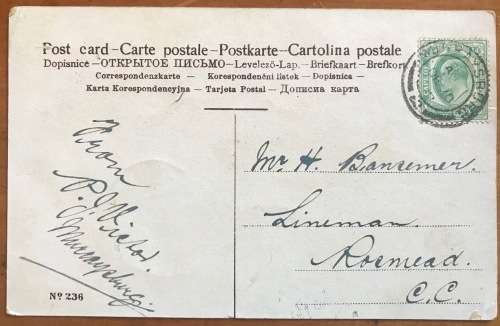 Post card – Carte postale – Postkarte – Cartolina postale
Dopisnice – ОТКРЫТОЕ ПИСЬМО – Levelező-Lap. – Briefkaart – Brefkort
Correspondenzkarte – Korespondenční lístek – Dopisnica –
Karta Korespondencyjna – Tarjeta Postal – Дописна карта
From
Murraysburg.
Nº 236
Mr H. Bansemer.
Lineman.
Rosmead.
C.C.